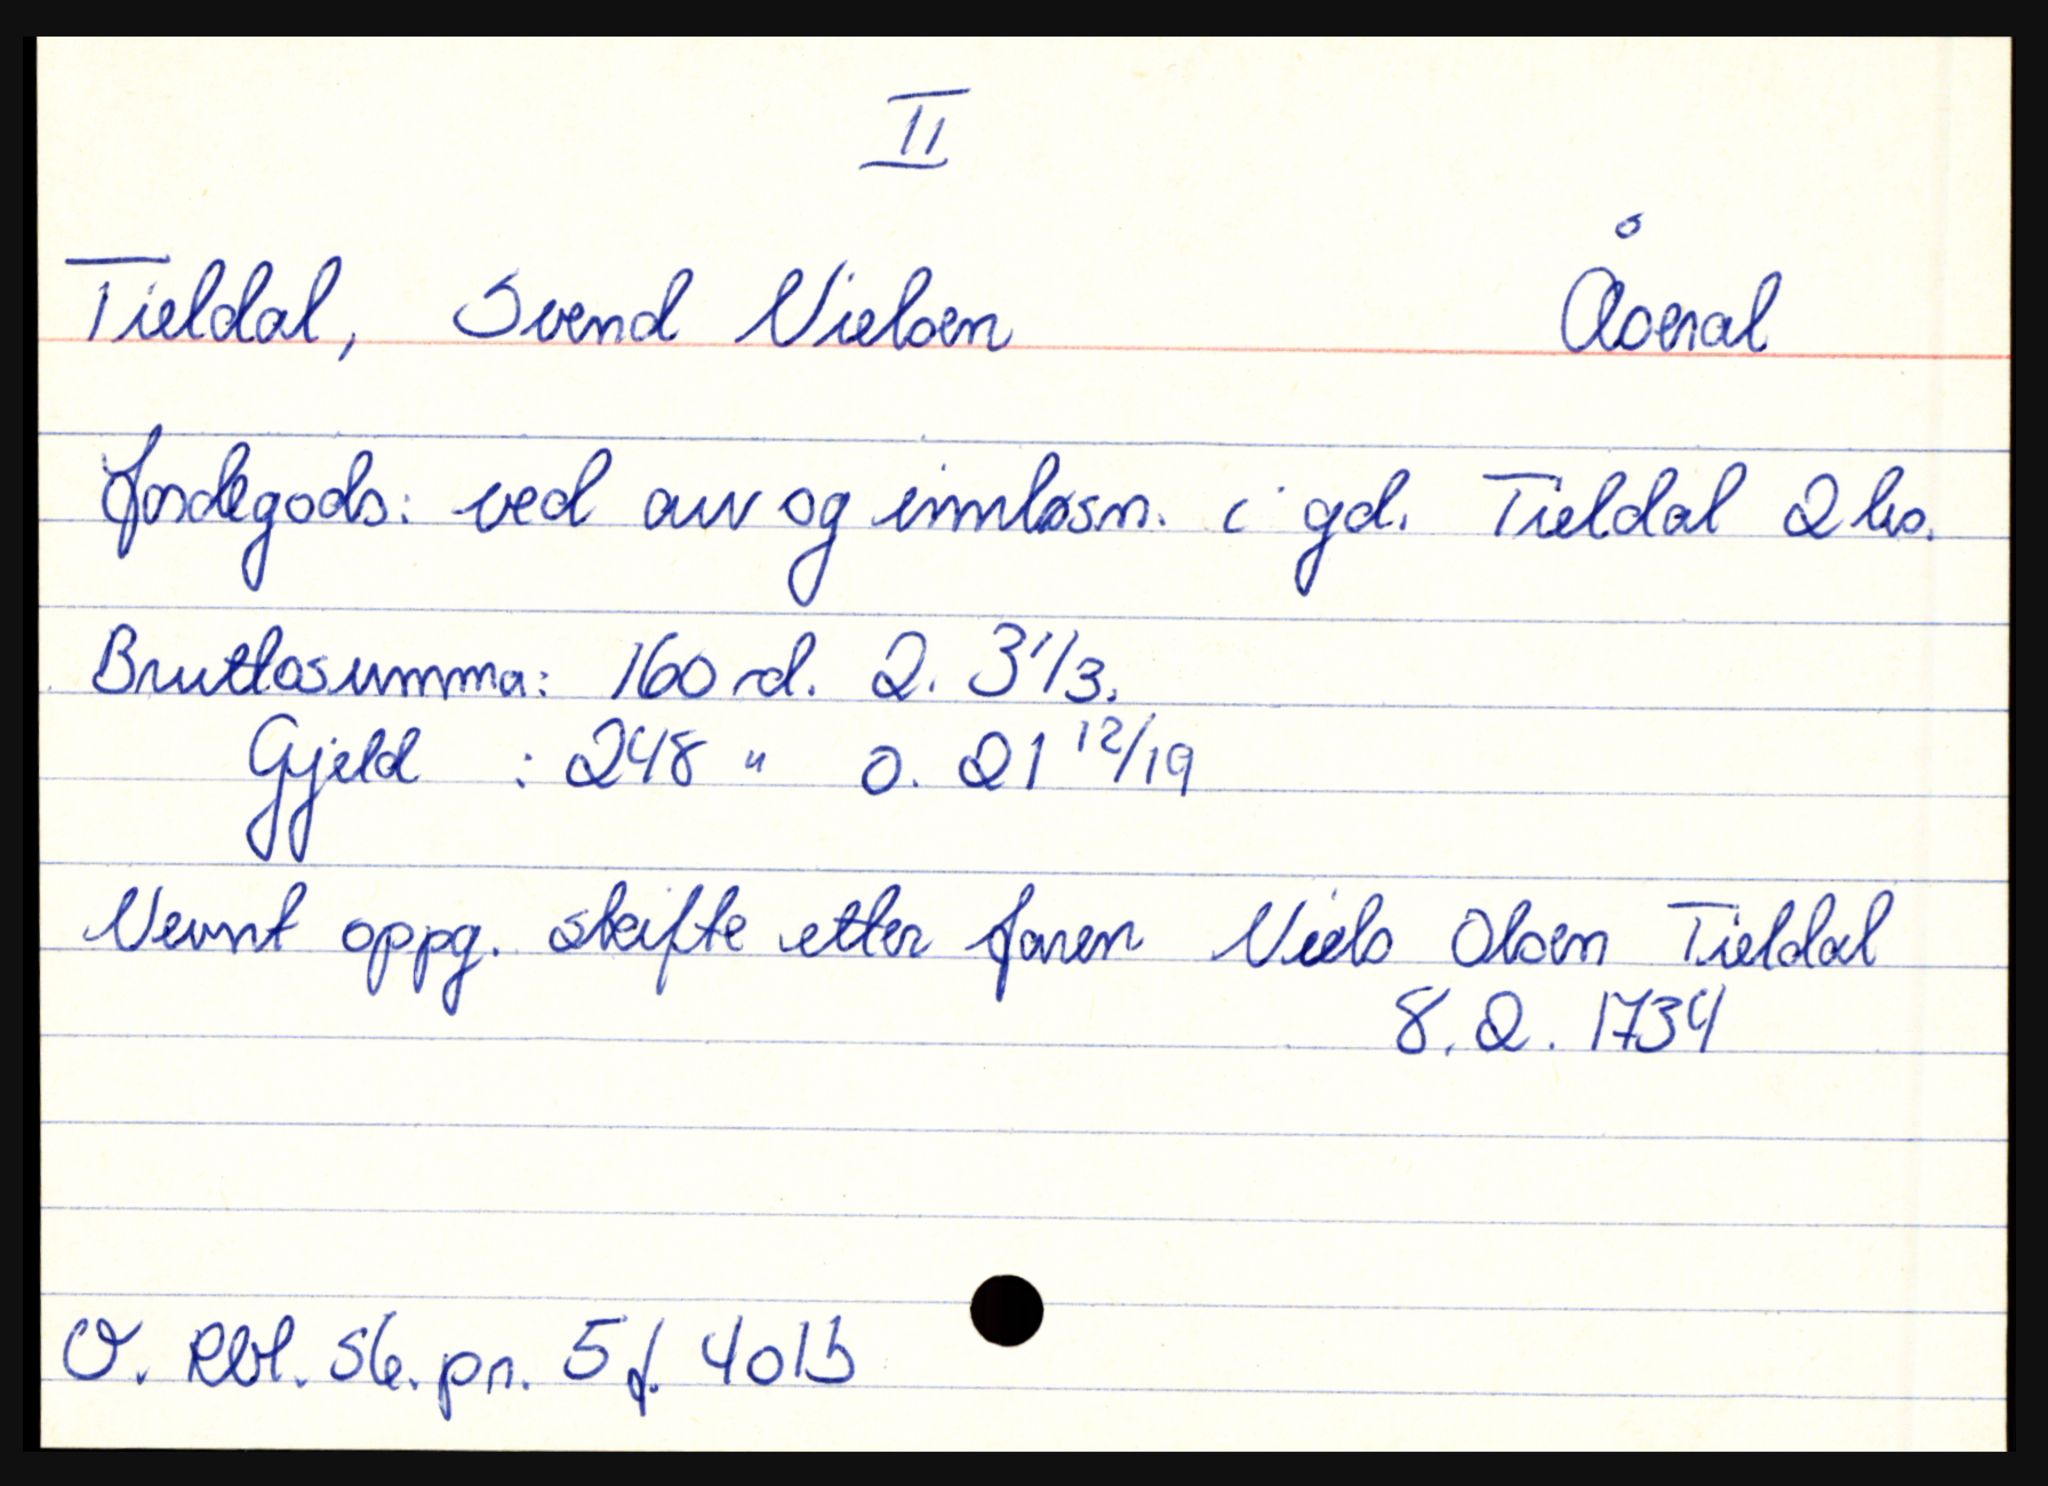 II
Tieldal, Svend Nielsen Åseral
Jordegods: ved arv og innløsn. i gd. Tieldal 2 hs.
Bruttosumma: 160 rd. 2. 3 1/3.
Gjeld : 248 " 0. 21 12/19
Nevnt oppg. skifte etter faren Niels Olsen Tieldal
8. 2. 1734
O. Rbl. Sk. pr. 5 f. 401b